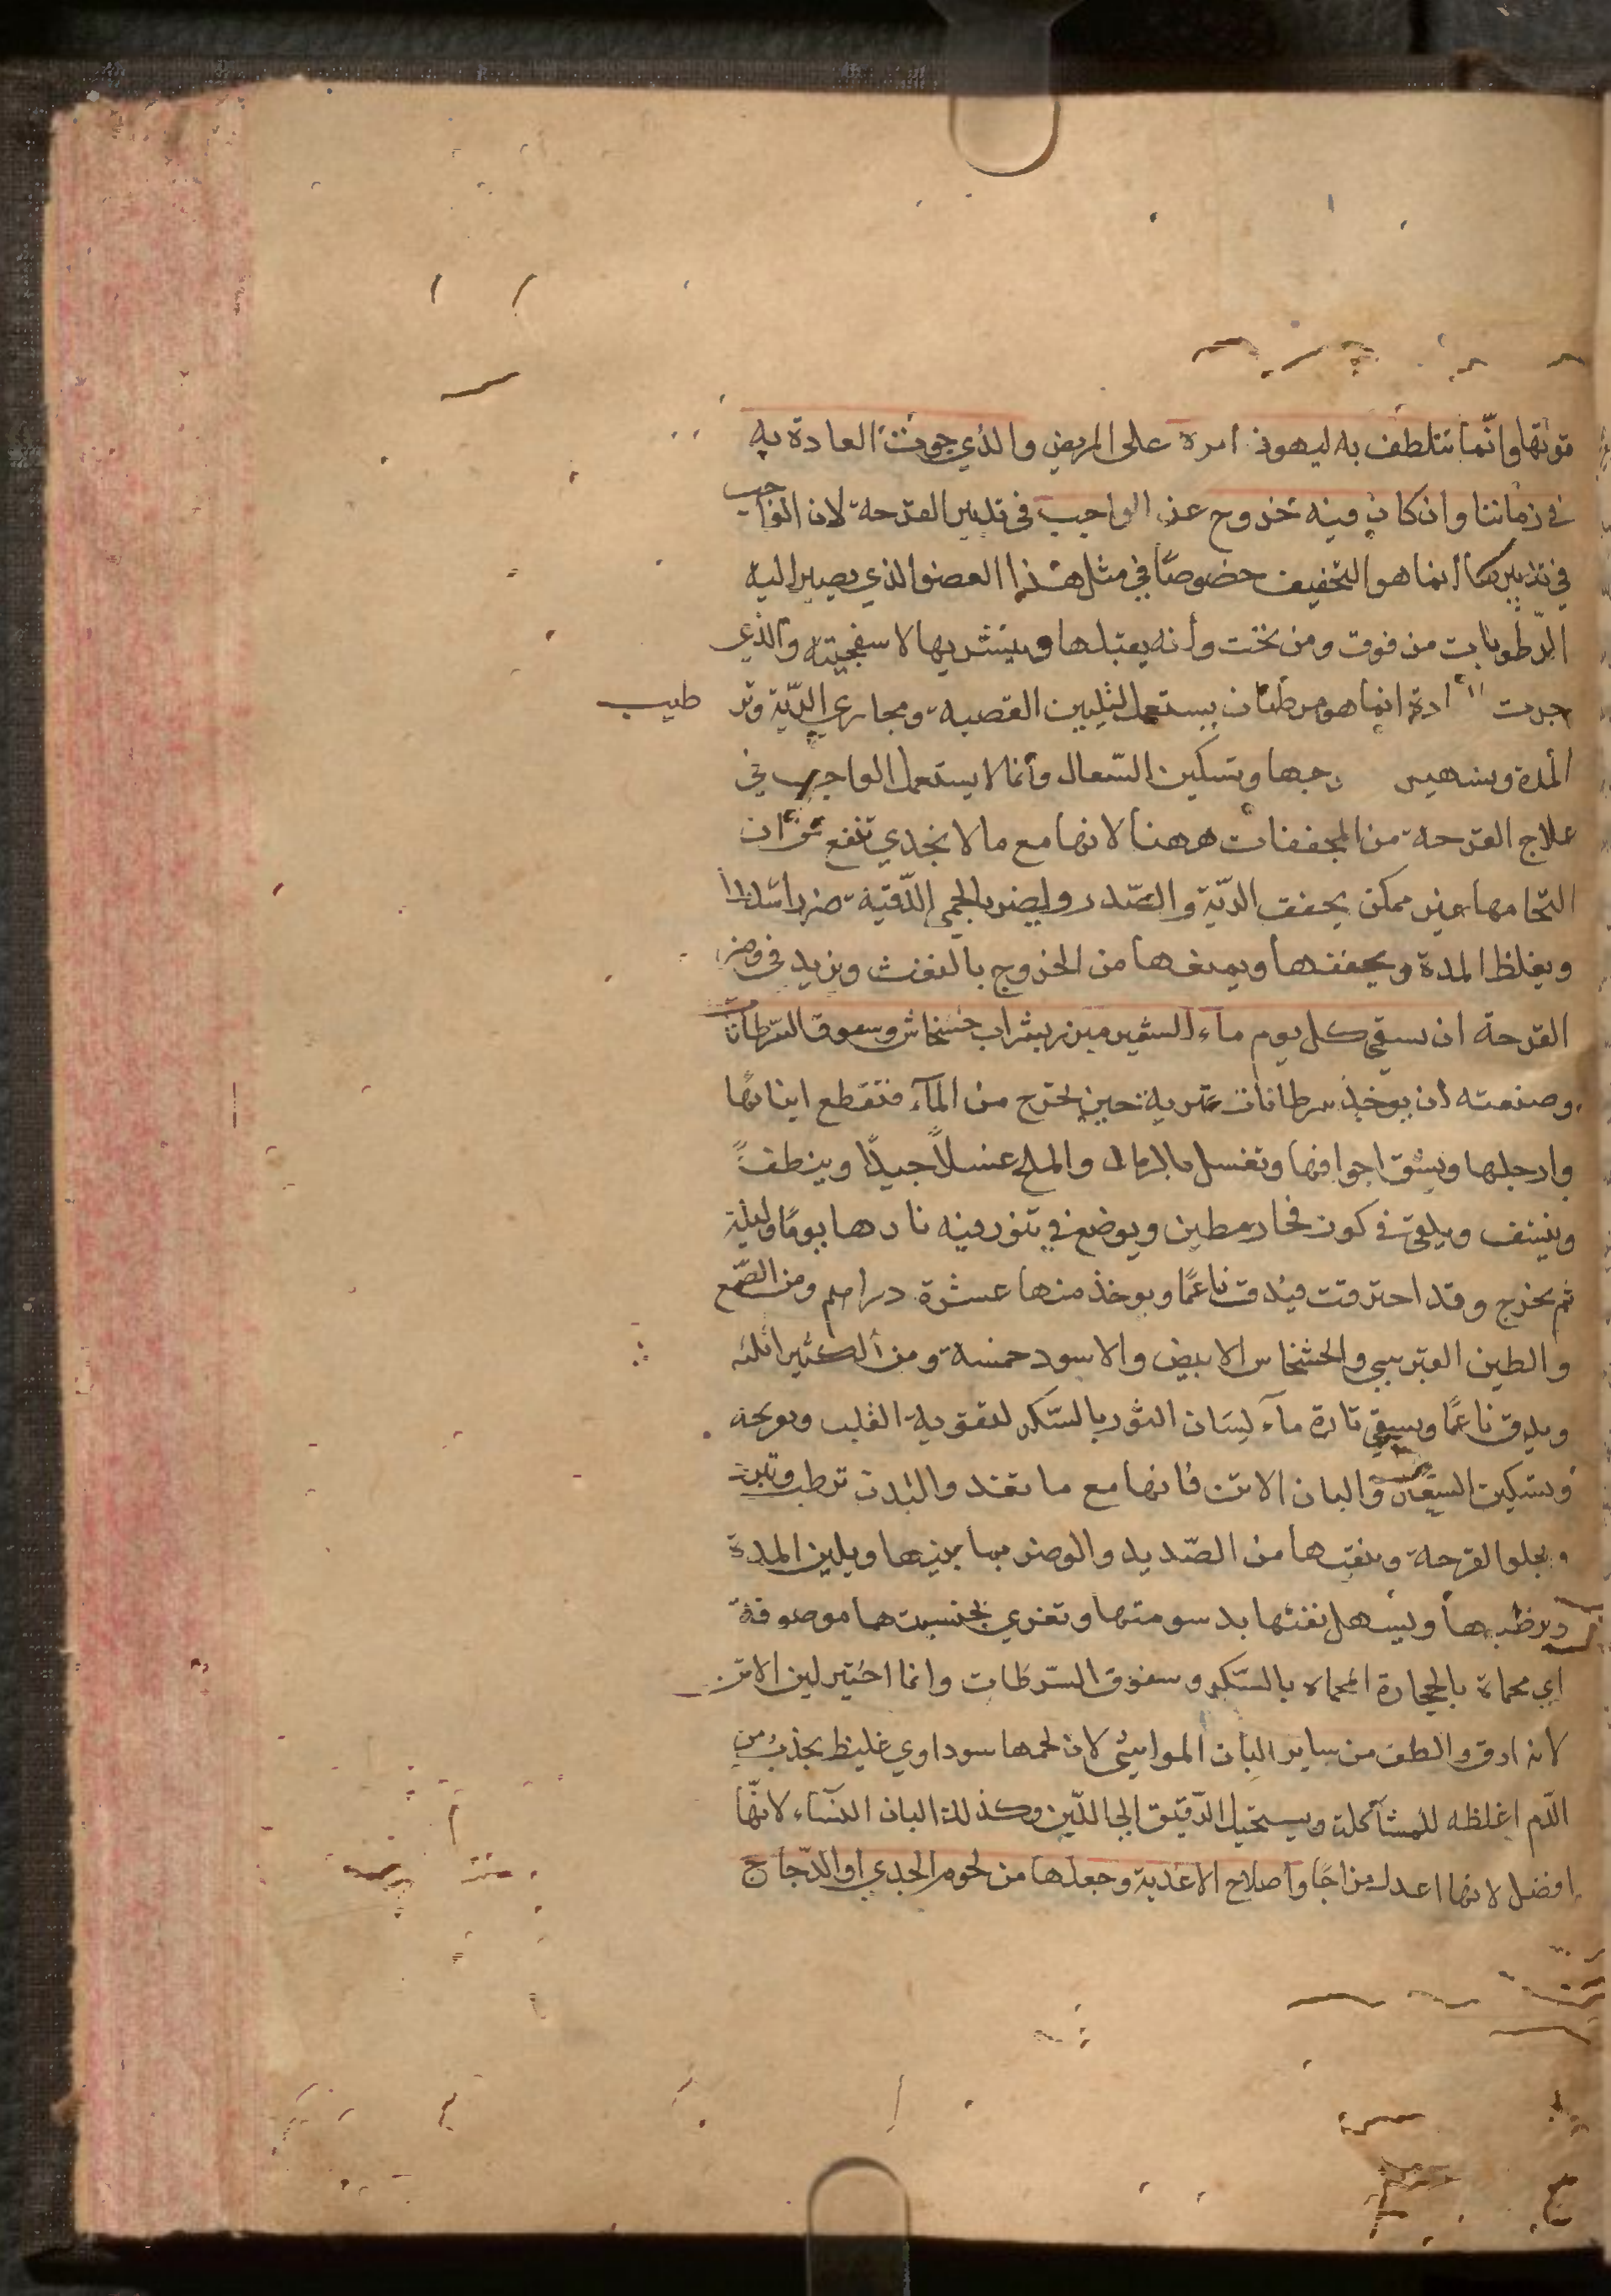 قوتها وانّما نتلطف به ليهون امره على المريض والذي جرت العادة به
في زماننا وان كان فيه خروج عن الواجب في تدبير القرحة لان الواجب
في تدبيرها انما هو التجفيف خصوصًا في مثل هذا العضو الذي يصير اليه
الرّطوبات من فوق ومن تحت وأنه يقبلها ويتشربها لاسفنجيته والذي
جرت ادة انما هو مرطبات يستعمل لتليين القصبة ومجاري الريّة وتر طيب
المدة وتسهيل خروجها وتسكين السّعال وأنما لا يستعمل الواجب في
علاج القرحة من المجففات ههنا لانها مع ما لا يجدي تنفع من ان
التحامها غير ممكن يجفف الريّة والصّدر وليضر بالحمى الدّقيّة ضررا شديدا
ويغلظ المدة ويجففها ويمنعها من الخروج بالنفث ويزيد في وضر
القرحة ان يسقى كل يوم ماء الشعير مبزر بشراب خشخاش وسفوف السّرطانات
وصنعته أن يوخذ سرطانات نهرية حين تخرج من المآء فتقطع انيابها
وارجلها ويشق اجوافها وتغسل بالرماد والملح غسلاً جيدًا وينظف
وينشف ويلقى في كوز فخار مطين ويوضع في تنور فيه نار هاد يومًا وليلة
ثم يخرج وقد احترقت فيدق ناعمًا ويوخذ منها عشرة دراهم ومن الصّمغ
والطين القبرسي والخشخاس الابيض والاسود خمسة ومن الكثيرا ثلثه
ويدق ناعمًا ويسقى تارة مآء لسَان الثور بالسّكر لتقوية القلب وتفريحه
وتسكين السّعال والبان الاتن فانها مع ما تغذ والبدن ترطب وتبرد
ويجلو القرحة وينقيها من الصّديد والوضر بمائيتها ويلين المدة
ويرطبها ويسهل نفثها بدسومتها وتغري بجنبيتها موصوفة
اي محماة بالحجارة المحماه بالسّكر وسفوف السّرطان وانما اختير لبن الاتن
لانه ارق والطف من ساير البان المواشي لان لحمها سوداوي غليظ يجذب من
الدّم اغلظه للمشآكلة ويستحيل الرّقيق الى اللّبن وكذلك البان النسَاء لانّها
افضل لانها اعدل مزاجًا واصلاح الاغذية وجعلها من لحوم الجدي او الدّجاج